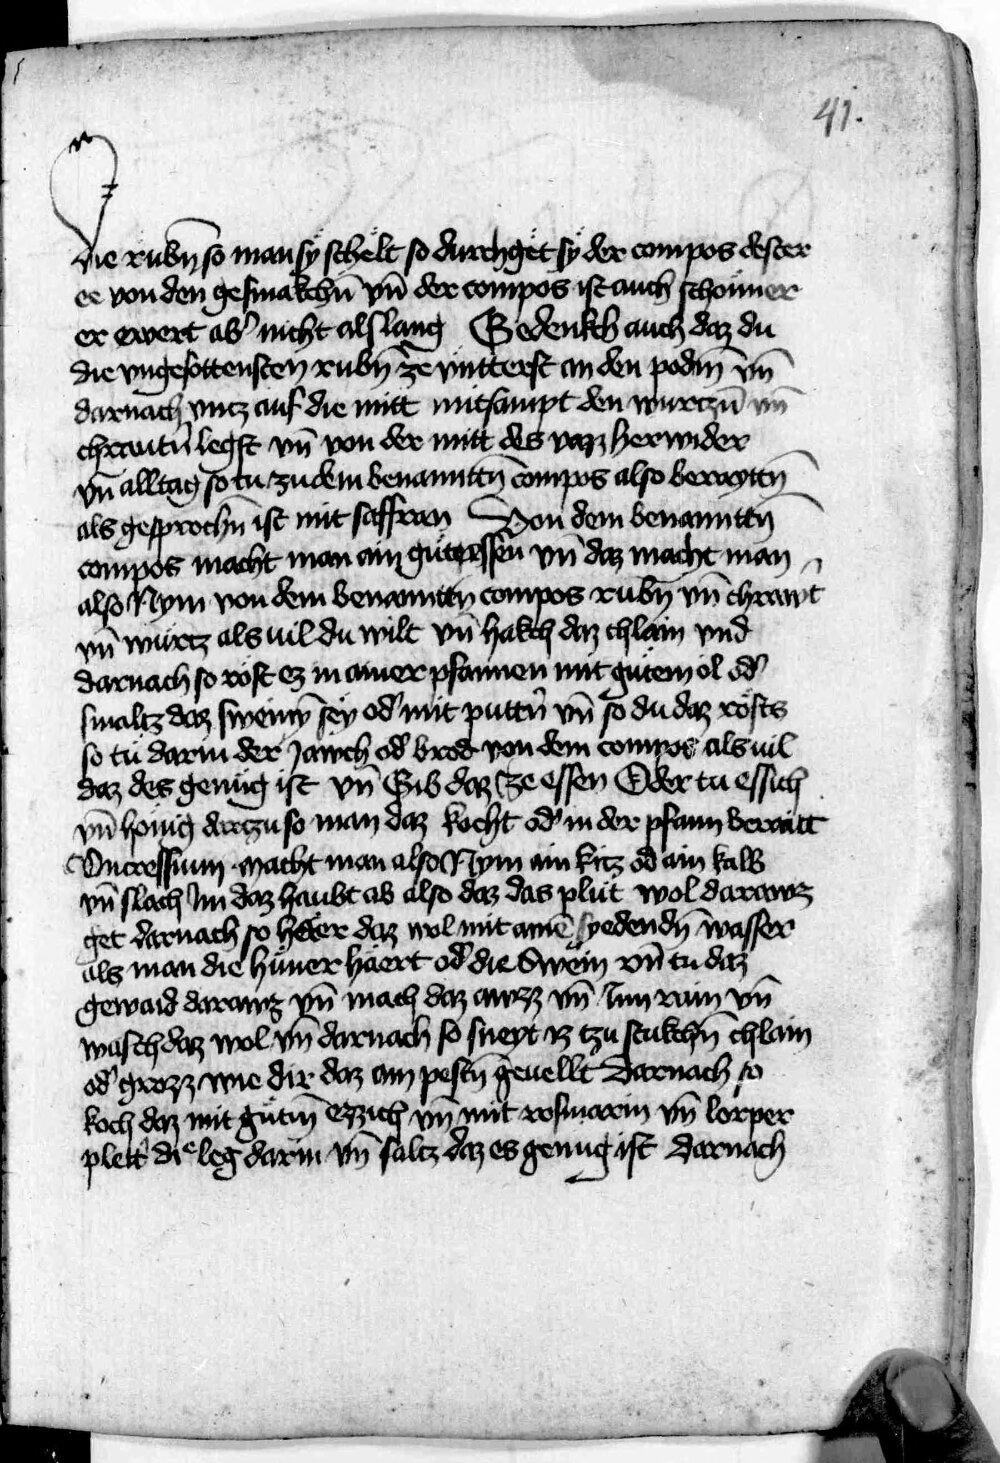 41.
die rubn̄ so man sÿ schelt so durchget sy der compos dester
ee von den gesmakchn̄ vn̄ der compos ist auch schonner
er wert ab' nicht als lang Gedenkch auch daz du
die vngesottensten rubn̄ ze vntterst an den podm̄ vn̄
darnach vntz auf die mitt mitsampt den wurtzn̄ vn̄
chrautn̄ legst vn̄ von der mitt des vazz herwider
vn̄ alltag so tu zu dem benanntn̄ compos also beraytn̄
als gesprochn̄ ist mit saffran Von dem benanntn̄
compos macht man ain gut essen vn̄ daz macht man
also Nym von dem benanntn̄ compos rubn̄ vn̄ chrawt
vn̄ würtz als uil du wilt vn̄ hakch daz chlain vnd
darnach so röst ez in ainer pfannen mit gütem öl od'
smaltz daz sweiny sey od' mit puttn̄ vn̄ so du daz rösts
so tü darin der Jawch od' brod von dem compos als uil
daz des genüg ist vn̄ Gib daz ze essen Oder tu essich
vn̄ honig dartzu so man daz kocht od' in der pfann berait
macht man also Nym ain kitz od' ain kalb
vn̄ slach Im daz haubt ab also daz das plüt wol darawz
get darnach so häer daz wol mit ainē syedendn̄ wasser
als man die hüner häert od' die Swein vn̄ tu daz
gewaid darawz vn̄ mach daz awzz vn̄ Inn rain vn̄
wasch daz wol vn̄ darnach so sneyt iz tzu stukchn̄ chlain
od' grozz wie dir daz am pestn̄ geuellt Darnach so
koch daz mit gütm̄ Ezzich vn̄ mit rosmarin vn̄ lorper
pleit' die leg darin vn̄ saltz daz es genüg ist Darnach